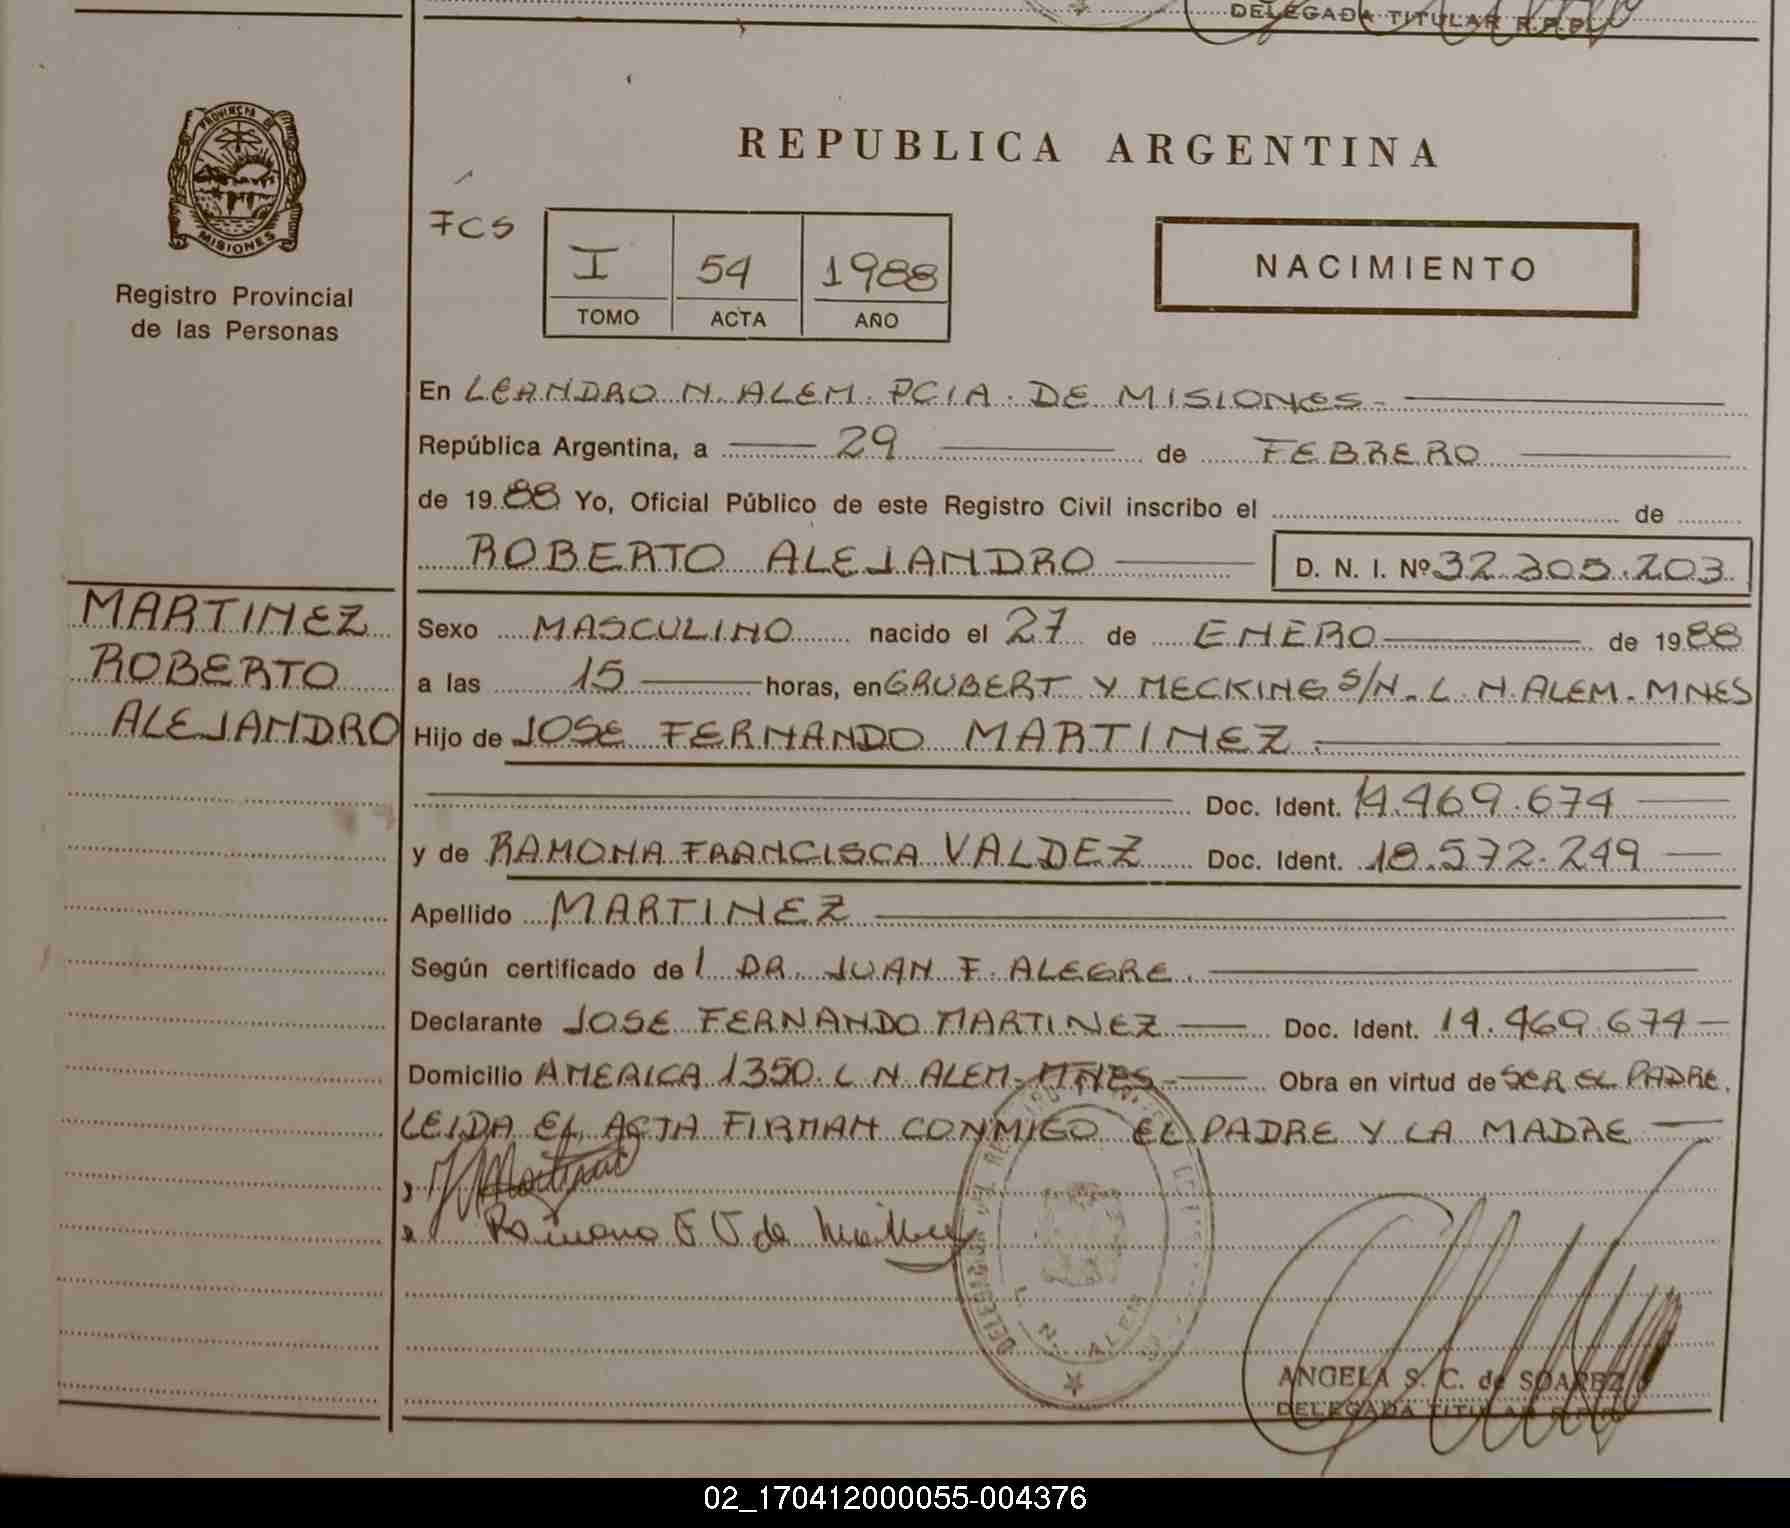 DELEGADA TITULAR R.P.P.
PROVINCIA DE
MISIONES
Registro Provincial
de las Personas
REPUBLICA ARGENTINA
FCS
I 54 1988
TOMO ACTA AÑO
NACIMIENTO
En LEANDRO N. ALEM. PCIA. DE MISIONES.
República Argentina, a 29 de FEBRERO
de 1988 Yo, Oficial Público de este Registro Civil inscribo el de
ROBERTO ALEJANDRO D. N. I. Nº 32.305.203
MARTINEZ
ROBERTO
ALEJANDRO
Sexo MASCULINO nacido el 27 de ENERO de 1988
a las 15 horas, en GRUBERT Y MECKING S/N. L. N. ALEM. MNES
Hijo de JOSE FERNANDO MARTINEZ.
Doc. Ident. 14.469.674
y de RAMONA FRANCISCA VALDEZ Doc. Ident. 18.572.249
Apellido MARTINEZ
Según certificado de l DR. JUAN F. ALEGRE.
Declarante JOSE FERNANDO MARTINEZ Doc. Ident. 14.469.674
Domicilio AMERICA 1350. L N ALEM. MNES. Obra en virtud de SER EL PADRE.
LEIDA EL ACTA FIRMAN CONMIGO EL PADRE Y LA MADRE
Martinez
Ramona F V de Martinez
L. N. ALEM
ANGELA S. C. de SOAREZ
DELEGADA TITULAR R.P.P.
02_170412000055-004376